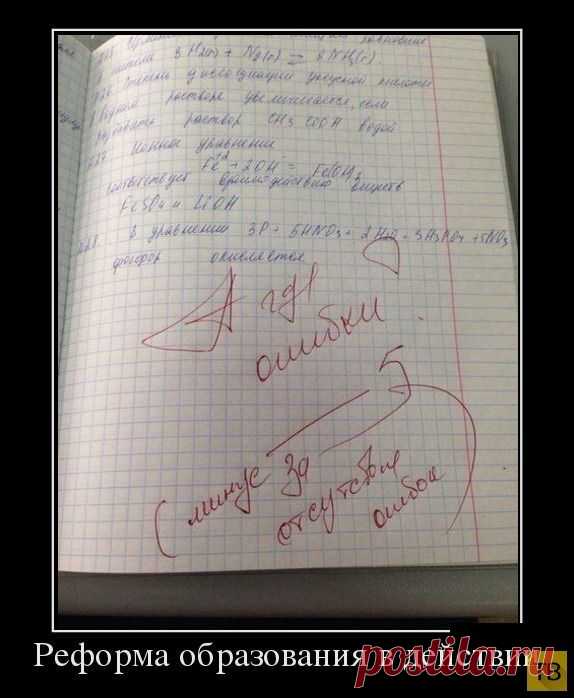 3 H₂(г) + N₂(г) ⇄ 2 NH₃(г).
Степень диссоциации уксусной кислоты
в водном растворе увеличивается, если
раствор CH₃COOH водой
Ионное уравнение
Fe²⁺ + 2OH⁻ = Fe(OH)₂
соответствует взаимодействию веществ
FeSO₄ и LiOH
В уравнении 3P + 5HNO₃ + 2H₂O = 3H₃PO₄ + 5NO
фосфор окисляется
А где
ошибки
5
(минус за
отсутствие
ошибок
Реформа образования в действии
postila.ru
ТВ